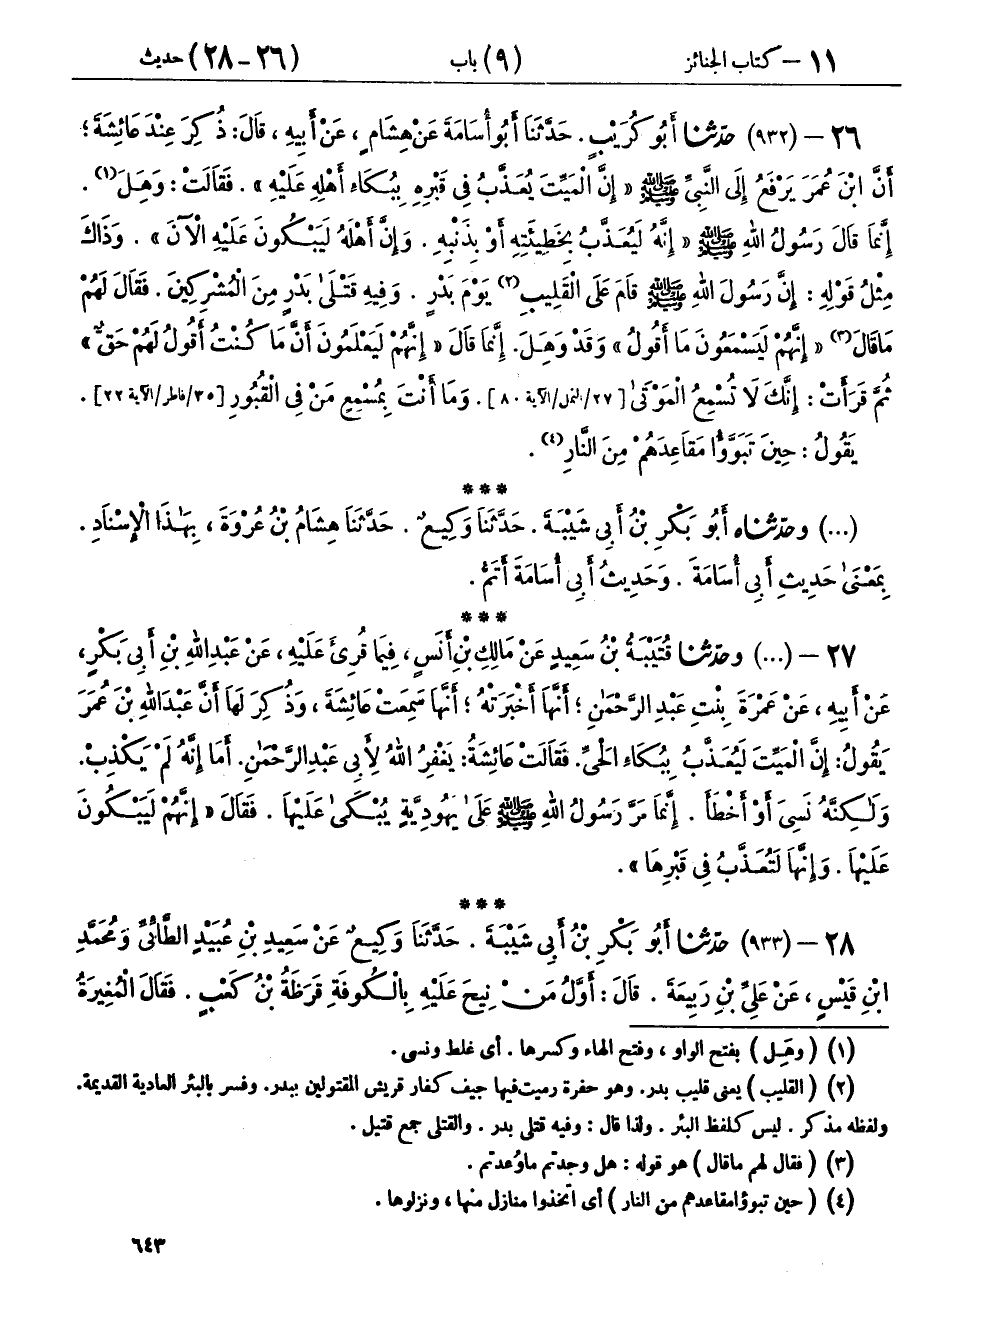 ١١ - كتاب الجنائز (٩) باب (٢٦-٢٨) حديث
٢٦ - (٩٣٢) حدّثنا أَبُو كُرَيْبٍ . حَدَّثَنَا أَبُو أُسَامَةَ عَنْ هِشَامٍ ، عَنْ أَبِيهِ ، قَالَ: ذُكِرَ عِنْدَ عَائِشَةَ ؛
أَنَّ ابْنَ عُمَرَ يَرْفَعُ إِلَى النَّبِيِّ ﷺ « إِنَّ الْمَيِّتَ يُعَذَّبُ فِي قَبْرِهِ بِبُكَاءِ أَهْلِهِ عَلَيْهِ » . فَقَالَتْ : وَهَلَ(١) .
إِنَّمَا قَالَ رَسُولُ اللهِ ﷺ « إِنَّهُ لَيُعَذَّبُ بِخَطِيئَتِهِ أَوْ بِذَنْبِهِ . وَإِنَّ أَهْلَهُ لَيَبْكُونَ عَلَيْهِ الْآنَ » . وَذَاكَ
مِثْلُ قَوْلِهِ : إِنَّ رَسُولَ اللهِ ﷺ قَامَ عَلَى الْقَلِيبِ(٢) يَوْمَ بَدْرٍ . وَفِيهِ قَتْلَىٰ بَدْرٍ مِنَ الْمُشْرِكِينَ . فَقَالَ لَهُمْ
مَاقَالَ(٣) « إِنَّهُمْ لَيَسْمَعُونَ مَا أَقُولُ » وَقَدْ وَهَلَ. إِنَّمَا قَالَ « إِنَّهُمْ لَيَعْلَمُونَ أَنَّ مَا كُنْتُ أَقُولُ لَهُمْ حَقٌّ »
ثُمَّ قَرَأَتْ : إِنَّكَ لَا تُسْمِعُ الْمَوْتَىٰ [ ٢٧/النمل/الآية ٨٠ ] . وَمَا أَنْتَ بِمُسْمِعٍ مَنْ فِي الْقُبُورِ [ ٣٥/فاطر/الآية ٢٢ ] .
يَقُولُ : حِينَ تَبَوَّؤُا مَقَاعِدَهُمْ مِنَ النَّارِ(٤) .
***
(...) وحدّثناه أَبُو بَكْرِ بْنُ أَبِي شَيْبَةَ . حَدَّثَنَا وَكِيعٌ . حَدَّثَنَا هِشَامُ بْنُ عُرْوَةَ ، بِهَـٰذَا الْإِسْنَادِ .
بِمَعْنَىٰ حَدِيثِ أَبِي أُسَامَةَ . وَحَدِيثُ أَبِي أُسَامَةَ أَتَمُّ .
***
٢٧ - (...) وحدّثنا قُتَيْبَةُ بْنُ سَعِيدٍ عَنْ مَالِكِ بْنِ أَنَسٍ ، فِيمَا قُرِئَ عَلَيْهِ ، عَنْ عَبْدِ اللهِ بْنِ أَبِي بَكْرٍ ،
عَنْ أَبِيهِ ، عَنْ عَمْرَةَ بِنْتِ عَبْدِ الرَّحْمَـٰنِ ؛ أَنَّهَا أَخْبَرَتْهُ ؛ أَنَّهَا سَمِعَتْ عَائِشَةَ ، وَذُكِرَ لَهَا أَنَّ عَبْدَ اللهِ بْنَ عُمَرَ
يَقُولُ : إِنَّ الْمَيِّتَ لَيُعَذَّبُ بِبُكَاءِ الْحَيِّ. فَقَالَتْ عَائِشَةُ: يَغْفِرُ اللهُ لِأَبِي عَبْدِ الرَّحْمَـٰنِ. أَمَا إِنَّهُ لَمْ يَكْذِبْ.
وَلَـٰكِنَّهُ نَسِيَ أَوْ أَخْطَأَ . إِنَّمَا مَرَّ رَسُولُ اللهِ ﷺ عَلَىٰ يَهُودِيَّةٍ يُبْكَىٰ عَلَيْهَا . فَقَالَ « إِنَّهُمْ لَيَبْكُونَ
عَلَيْهَا . وَإِنَّهَا لَتُعَذَّبُ فِي قَبْرِهَا » .
***
٢٨ - (٩٣٣) حدّثنا أَبُو بَكْرِ بْنُ أَبِي شَيْبَةَ . حَدَّثَنَا وَكِيعٌ عَنْ سَعِيدِ بْنِ عُبَيْدٍ الطَّائِيِّ وَمُحَمَّدِ
ابْنِ قَيْسٍ ، عَنْ عَلِيِّ بْنِ رَبِيعَةَ . قَالَ : أَوَّلُ مَنْ نِيحَ عَلَيْهِ بِالْكُوفَةِ قَرَظَةُ بْنُ كَعْبٍ . فَقَالَ الْمُغِيرَةُ
(١) ( وهل ) بفتح الواو ، وفتح الهاء وكسرها . أى غلط ونسى .
(٢) ( القليب ) يعنى قليب بدر. وهو حفرة رميت فيها جيف كفار قريش المقتولين ببدر. وفسر بالبئر العادية القديمة.
ولفظه مذكر . ليس كلفظ البئر . ولذا قال : وفيه قتلى بدر . والقتلى جمع قتيل .
(٣) ( فقال لهم ماقال ) هو قوله : هل وجدتم ماوُعدتم .
(٤) ( حين تبوؤا مقاعدهم من النار ) أى اتخذوا منازل منها ، ونزلوها .
٦٤٣